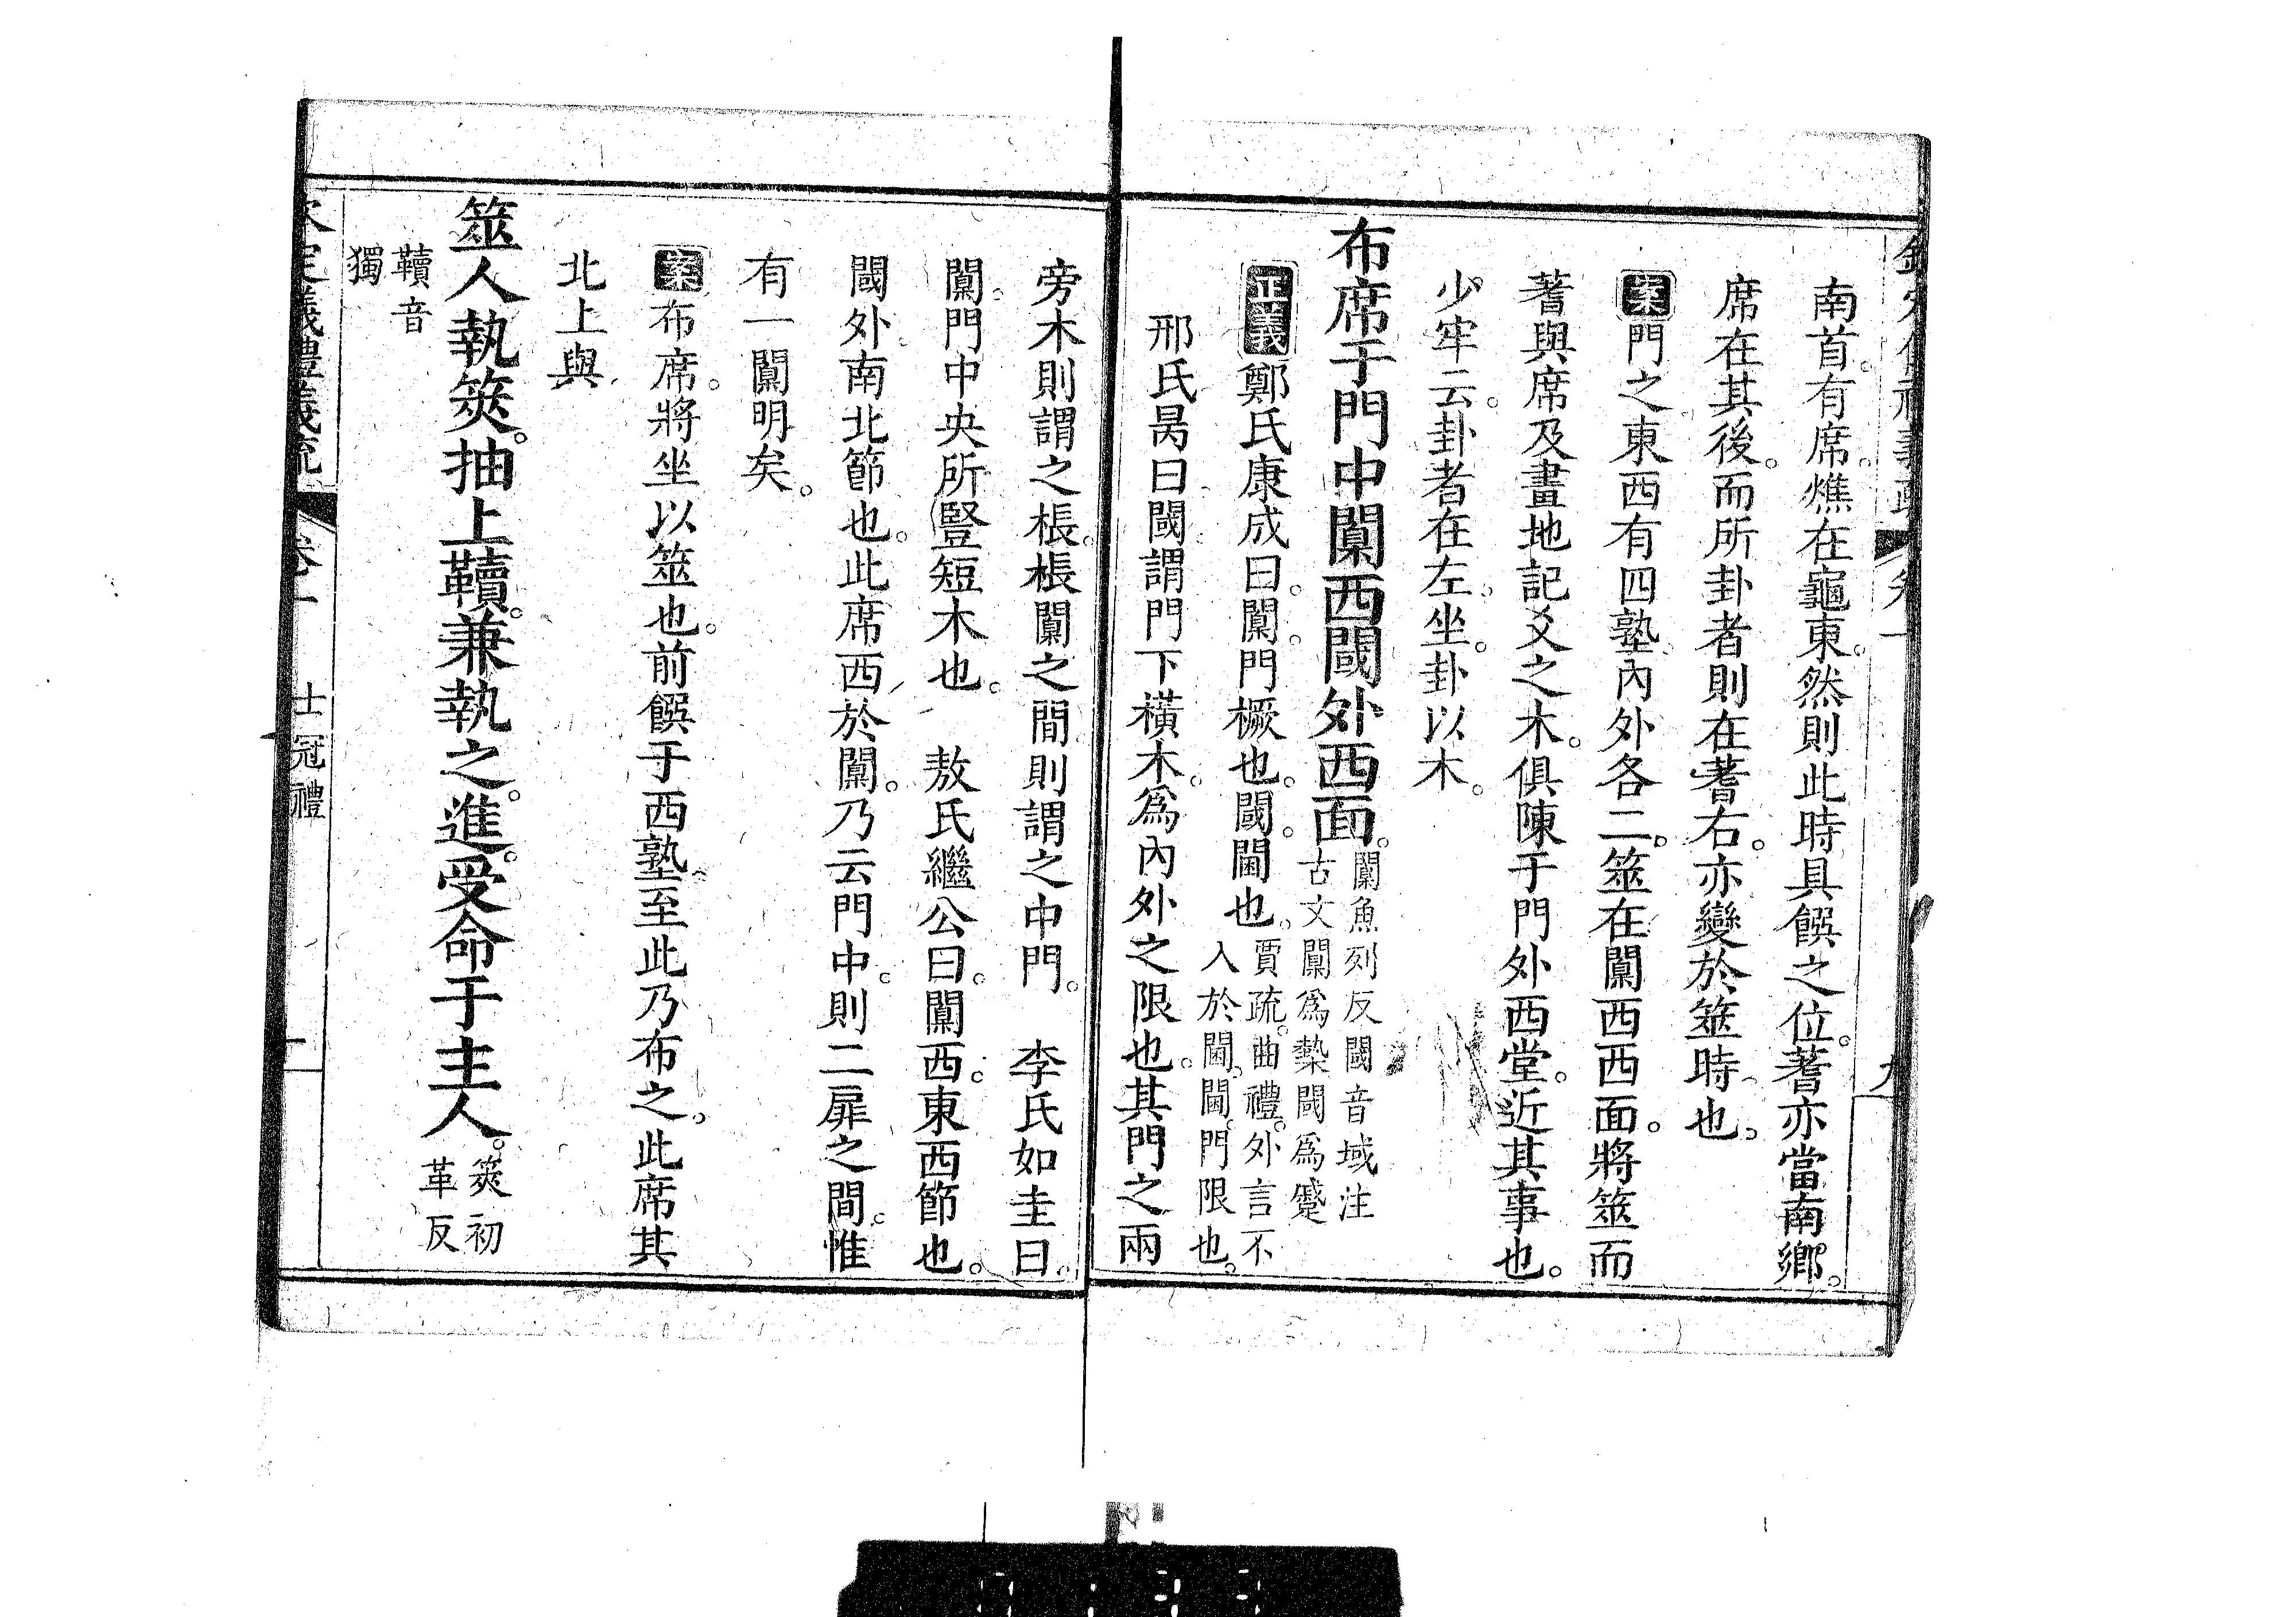 南首。有席。燋在龜東。然則此時具饌之位。蓍亦當南鄉。
席在其後。而所卦者則在蓍右。亦變於筮時也。
案門之東西有四塾。內外各二。筮在闑西西面。將筮而
蓍與席及畫地記爻之木。俱陳于門外西堂。近其事也。
少牢云。卦者在左坐。卦以木。
布席于門中闑西閾外西面。闑魚列反閾音域注
古文闑爲槷閾爲蹙
正義鄭氏康成曰。闑。門橛也。閾。閫也。賈疏。曲禮。外言不
入於閫。閫。門限也。
邢氏昺曰閾謂門下橫木。爲內外之限也。其門之兩
旁木則謂之棖。棖闑之間則謂之中門。　李氏如圭曰。
闑。門中央所豎短木也。　敖氏繼公曰。闑西。東西節也。
閾外。南北節也。此席西於闑。乃云門中。則二扉之間。惟
有一闑明矣。
案布席。將坐以筮也。前饌于西塾。至此乃布之。此席其
北上與
筮人執筴。抽上韇。兼執之。進。受命于主人。筴初
革反
韇音
獨
欽定儀禮義疏　卷一　士冠禮